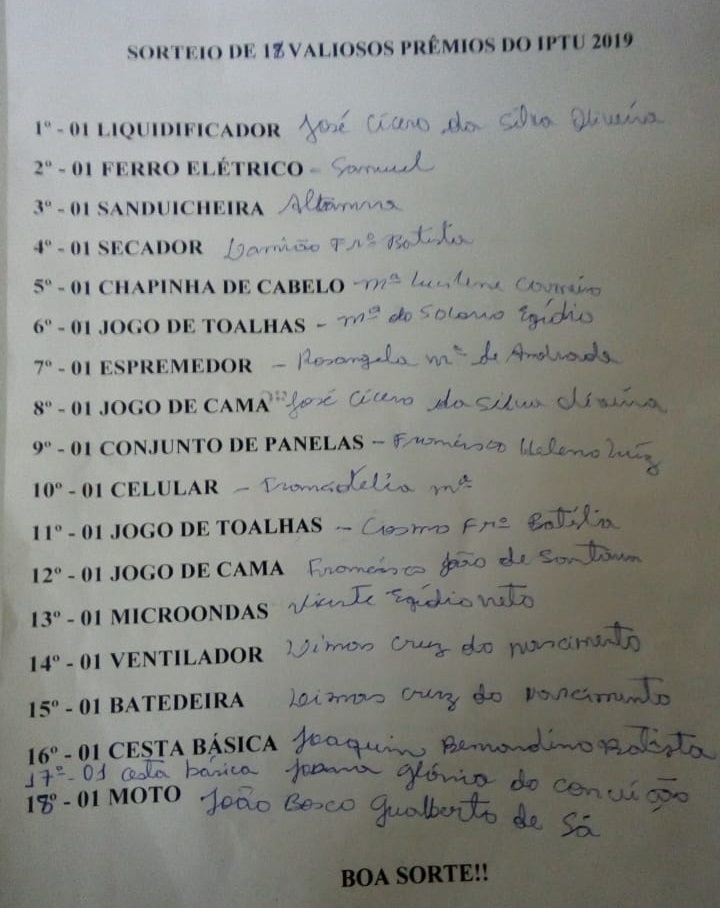 SORTEIO DE 18 VALIOSOS PRÊMIOS DO IPTU 2019
1º - 01 LIQUIDIFICADOR José Cícero da Silva Oliveira
2º - 01 FERRO ELÉTRICO - Samuel
3º - 01 SANDUICHEIRA Altamira
4º - 01 SECADOR Damião Frº Batista
5º - 01 CHAPINHA DE CABELO - Mª Lucilene
6º - 01 JOGO DE TOALHAS - Mª do Socorro Egídio
7º - 01 ESPREMEDOR - Rosangela Mª de Andrade
8º - 01 JOGO DE CAMA José Cícero da Silva Oliveira
9º - 01 CONJUNTO DE PANELAS - Francisco Heleno Luiz
10º - 01 CELULAR - Mª
11º - 01 JOGO DE TOALHAS - Cosmo Frº Batista
12º - 01 JOGO DE CAMA Francisco João de Santana
13º - 01 MICROONDAS Vicente Egídio neto
14º - 01 VENTILADOR cruz do nascimento
15º - 01 BATEDEIRA cruz do nascimento
16º - 01 CESTA BÁSICA Joaquim Bernardino Batista
17º - 01 cesta básica Joana glória da conceição
18º - 01 MOTO João Bosco Gualberto de Sá
BOA SORTE!!